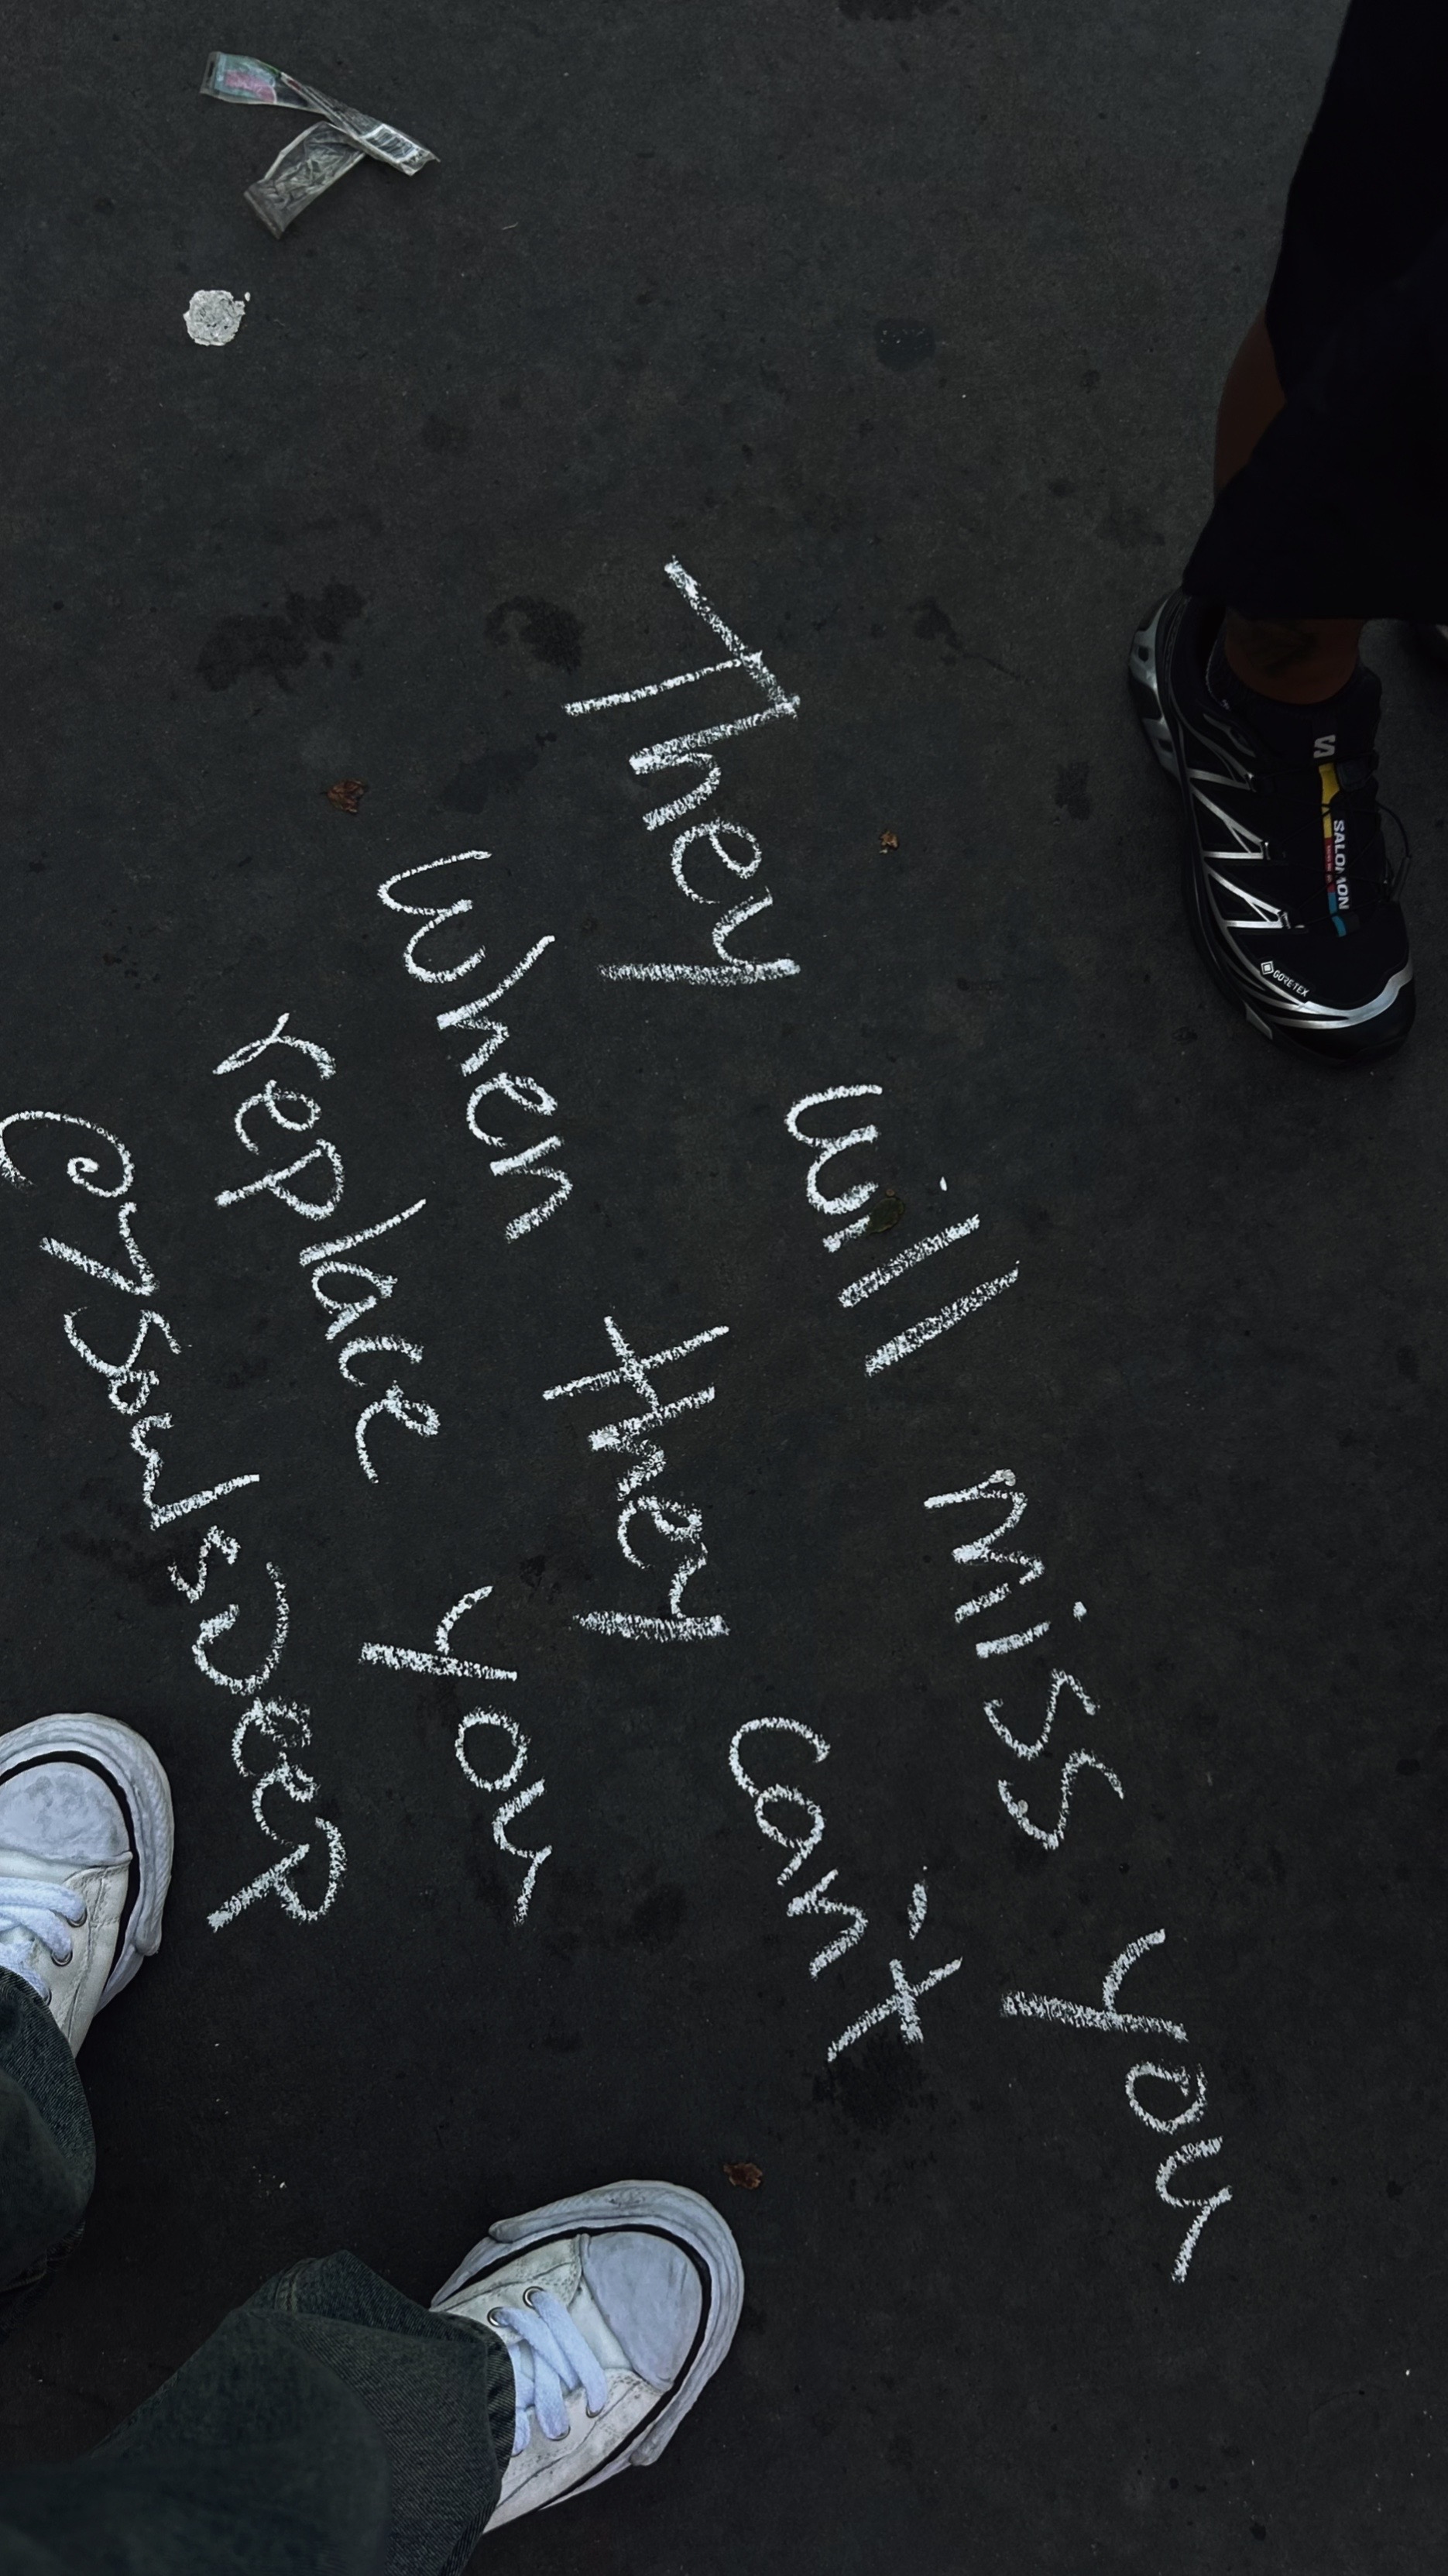 They will miss you
when they can't
replace you
@7SoulsDeep
SALOMON
GORETEX